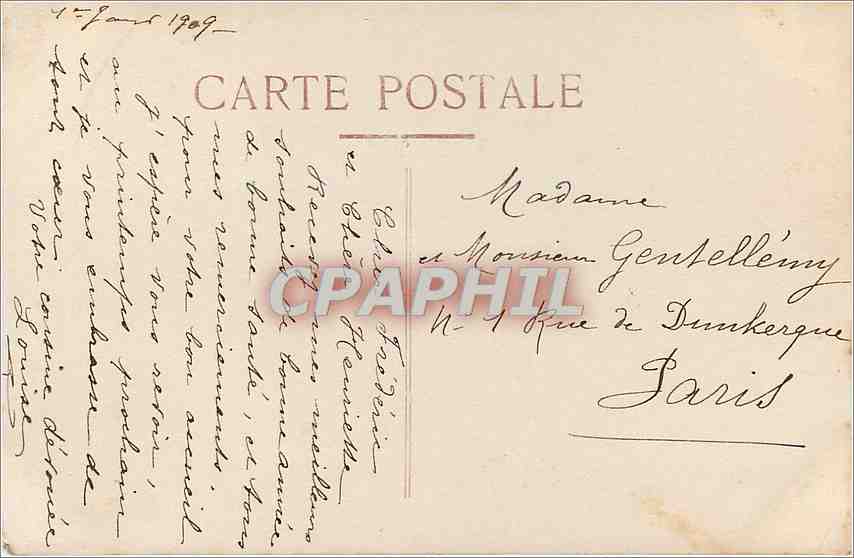 1er Janv 1909
CARTE POSTALE
Cher Frédéric
et Chère Henriette
Recevez mes meilleurs
souhaits de bonne année
de bonne santé, et tous
mes remerciements
pour votre bon accueil
J'espère vous revoir
au printemps prochain
et je vous embrasse de
tout cœur
Votre cousine dévouée
Louise
Madame
et Monsieur Gentellémy
N- 1 Rue de Dunkerque
Paris
CPAPHIL